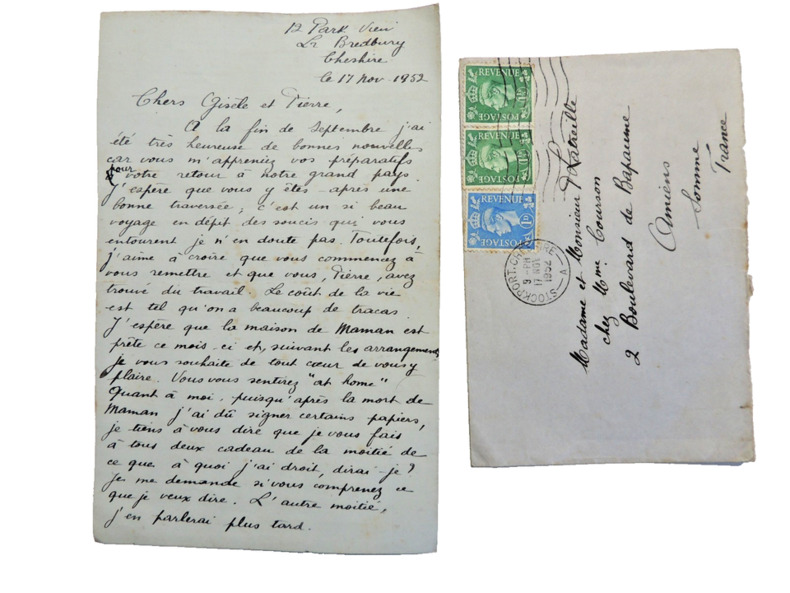 12 Park View
Lr Bredbury
Cheshire
le 17 Nov. 1952
Chers Gisèle et Pierre,
A la fin de Septembre j'ai
été très heureuse de bonnes nouvelles
car vous m'appreniez vos préparatifs
pour votre retour à notre grand pays.
J'espère que vous y êtes après une
bonne traversée; c'est un si beau
voyage en dépit des soucis qui vous
entourent je n'en doute pas. Toutefois,
j'aime à croire que vous commencez à
vous remettre et que vous, Pierre, avez
trouvé du travail. Le coût de la vie
est tel qu'on a beaucoup de tracas.
J'espère que la maison de Maman est
prête ce mois-ci et, suivant les arrangements
je vous souhaite de tout cœur de vous y
plaire. Vous vous sentirez "at home"
Quant à moi, puisqu'après la mort de
Maman j'ai dû signer certains papiers,
je tiens à vous dire que je vous fais
à tous deux cadeau de la moitié de
ce que, à quoi j'ai droit, dirai-je?
Je me demande si vous comprenez ce
que je veux dire. L'autre moitié,
j'en parlerai plus tard.
REVENUE
POSTAGE
REVENUE
POSTAGE
REVENUE
1D
POSTAGE
STOCKPORT, CHESHIRE
9 - PM
17 NOV
1952
A
Madame et Monsieur P. Latreille
chez Mme Courson
2 Boulevard de Bapaume
Amiens
Somme
France